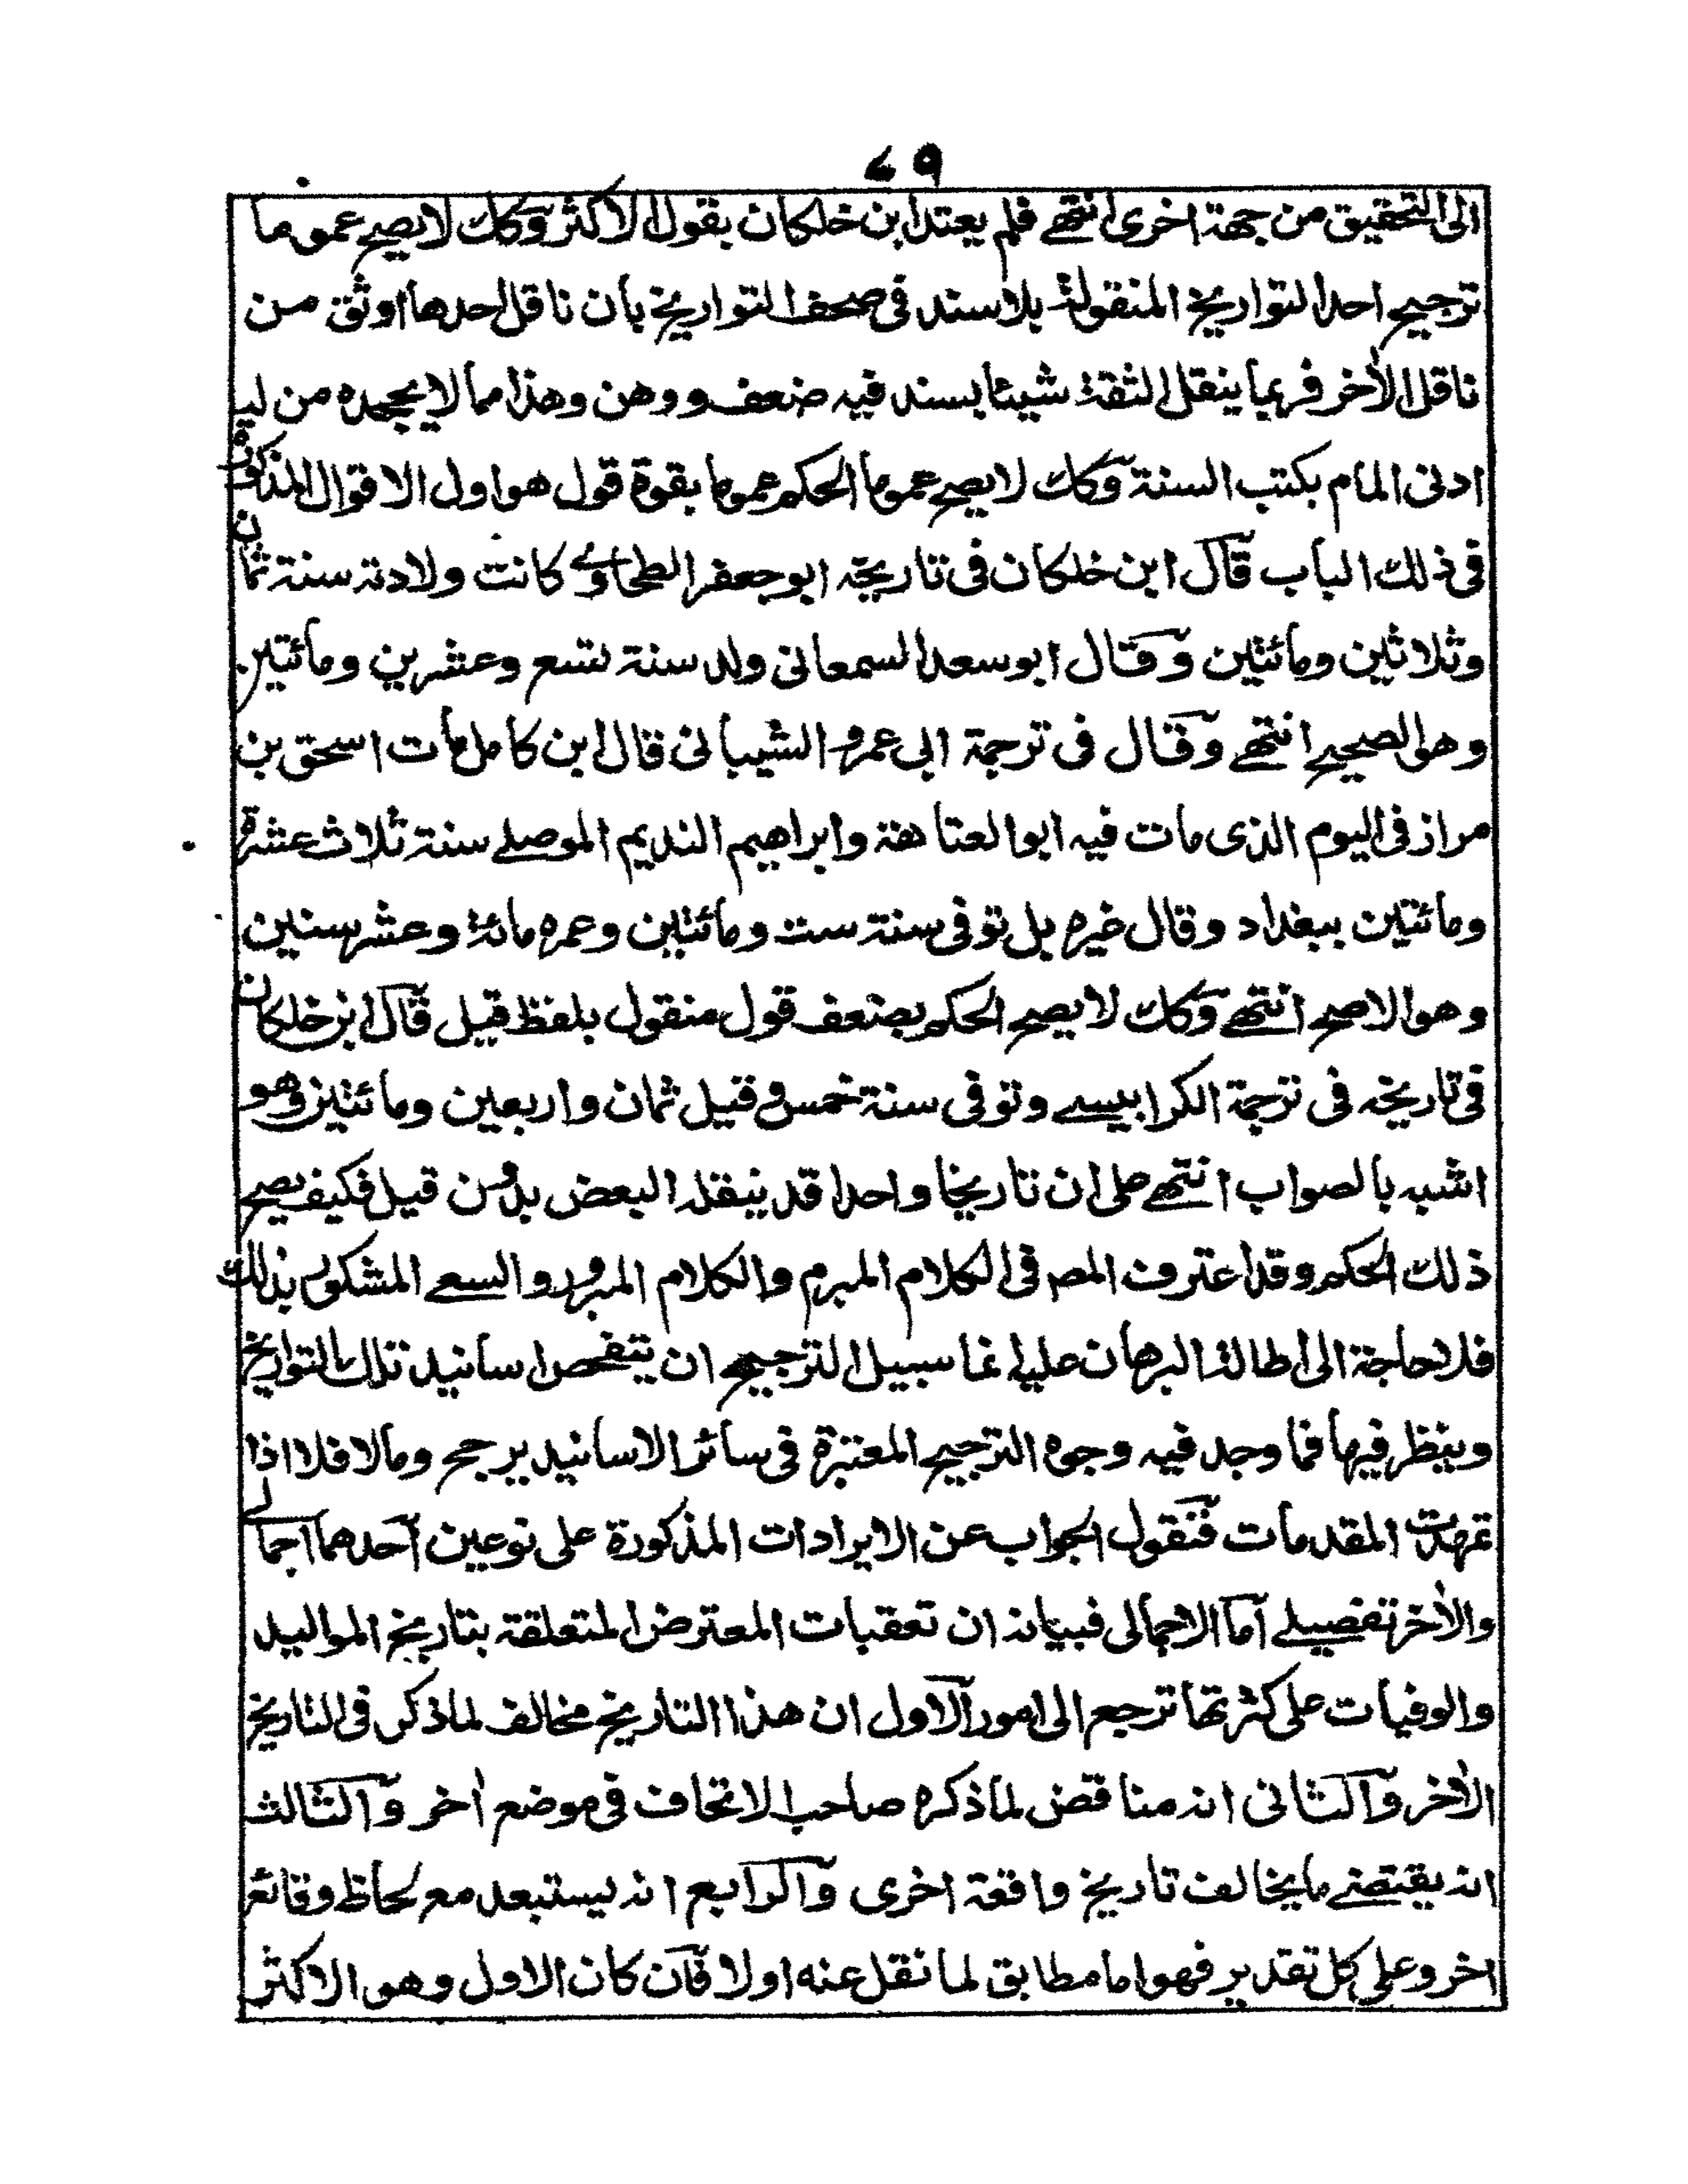 ٧٩
الى التحقيق من جهة اخرى انتهى فلم يعتد ابن خلكان بقول الاكثر وكك لا يصح عموما
ترجيح احد التواريخ المنقولة بلا سند فى صحف التواريخ بان ناقل احدها اوثق من
ناقل الأخر فربما ينقل الثقة شيئا بسند فيه ضعف ووهن وهذا مما لا يجحده من له
ادنى المام بكتب السنة وكك لا يصح عموما الحكم عموما بقوة قول هو اول الاقوال المذكورة
فى ذلك الباب قال ابن خلكان فى تاريخه ابو جعفر الطحاوى كانت ولادته سنة ثمان
وثلاثين ومائتين وقال ابو سعد السمعانى ولد سنة تسع وعشرين ومائتين
وهو الصحيح انتهى وقال فى ترجمة ابى عمرو الشيبانى قال ابن كامل مات اسحق بن
مراز فى اليوم الذى مات فيه ابو العتاهية وابراهيم النديم الموصلى سنة ثلاث عشرة
ومائتين ببغداد وقال غيره بل توفى سنة ست ومائتين وعمره مائة وعشر سنين
وهو الاصح انتهى وكك لا يصح الحكم بضعف قول منقول بلفظ قيل قال ابن خلكان
فى تاريخه فى ترجمة الكرابيسى وتوفى سنة خمس وقيل ثمان واربعين ومائتين وهو
اشبه بالصواب انتهى على ان تاريخا واحدا قد ينقله البعض بدون قيل فكيف يصح
ذلك الحكم وقد اعترف المصـ فى الكلام المبرم والكلام المبرور والسعى المشكور بذلك
فلا حاجة الى اطالة البرهان عليه انما سبيل الترجيح ان يتفحص اسانيد تلك التواريخ
وينظر فيها فما وجد فيه وجوه الترجيح المعتبرة فى سائر الاسانيد يرجح وما لا فلا اذا
تمهدت المقدمات فنقول الجواب عن الايرادات المذكورة على نوعين احدهما اجمالى
والأخر تفصيلى اما الاجمالى فبيانه ان تعقبات المعترض المتعلقة بتاريخ المواليد
والوفيات على كثرتها ترجع الى امور الاول ان هذا التاريخ مخالف لما ذكر فى التاريخ
الأخر والثانى انه مناقض لما ذكره صاحب الاتحاف فى موضع أخر والثالث
انه يقتضى ما يخالف تاريخ واقعة اخرى والرابع انه يستبعد مع لحاظ وقائع
اخر وعلى كل تقدير فهو اما مطابق لما نقل عنه اولا فان كان الاول وهو الاكثر